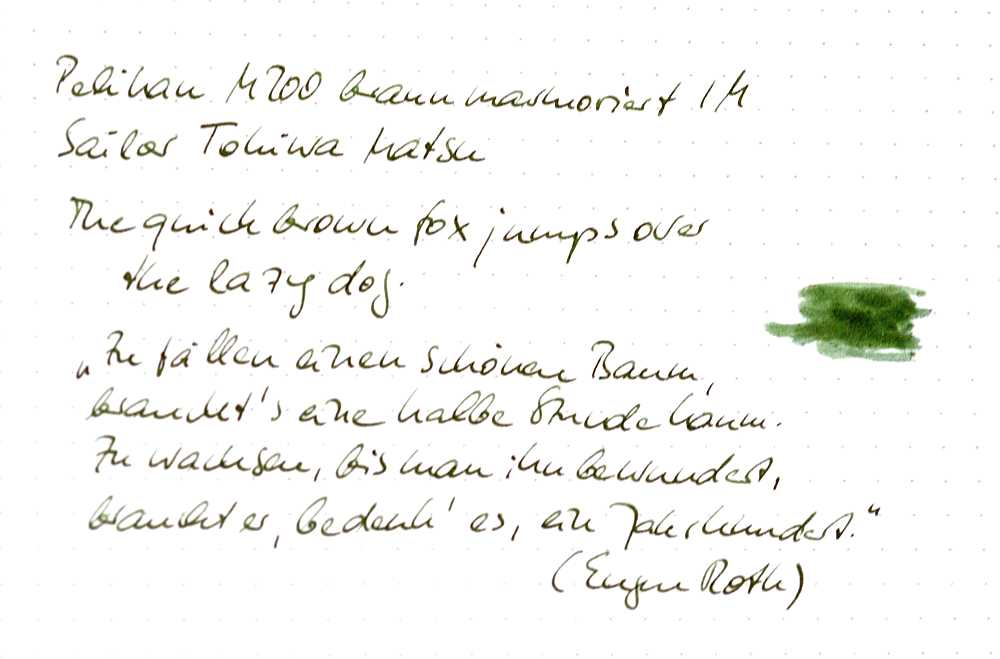 Pelikan M200 braun marmoriert IM
Sailor Tokiwa Matsu
The quick brown fox jumps over
the lazy dog.
„Zu fällen einen schönen Baum,
braucht's eine halbe Stunde kaum.
Zu wachsen, bis man ihn bewundert,
braucht er, bedenk' es, ein Jahrhundert.“
(Eugen Roth)